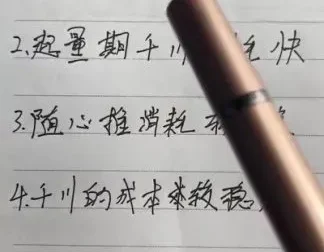 2.起量期千川 耗快
3.随心推消耗
4.千川的成本来较稳